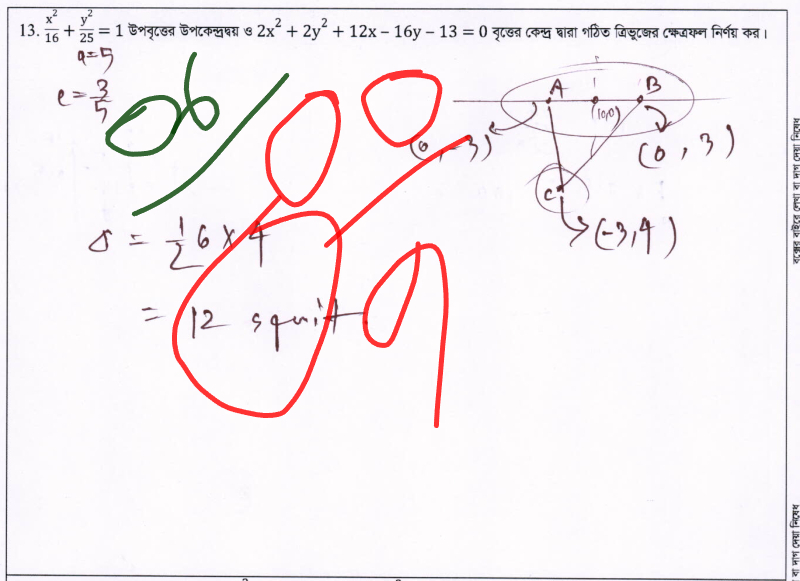 13. x²/16 + y²/25 = 1 উপবৃত্তের উপকেন্দ্রদ্বয় ও 2x² + 2y² + 12x − 16y − 13 = 0 বৃত্তের কেন্দ্র দ্বারা গঠিত ত্রিভুজের ক্ষেত্রফল নির্ণয় কর।
a=5
e = 3/5
A B
(0,0)
(0, -3) (0, 3)
C
(-3,4)
= 1/2 6 × 4
= 12 squnit
বক্সের বাইরে লেখা বা দাগ দেয়া নিষেধ
বা দাগ দেয়া নিষেধ